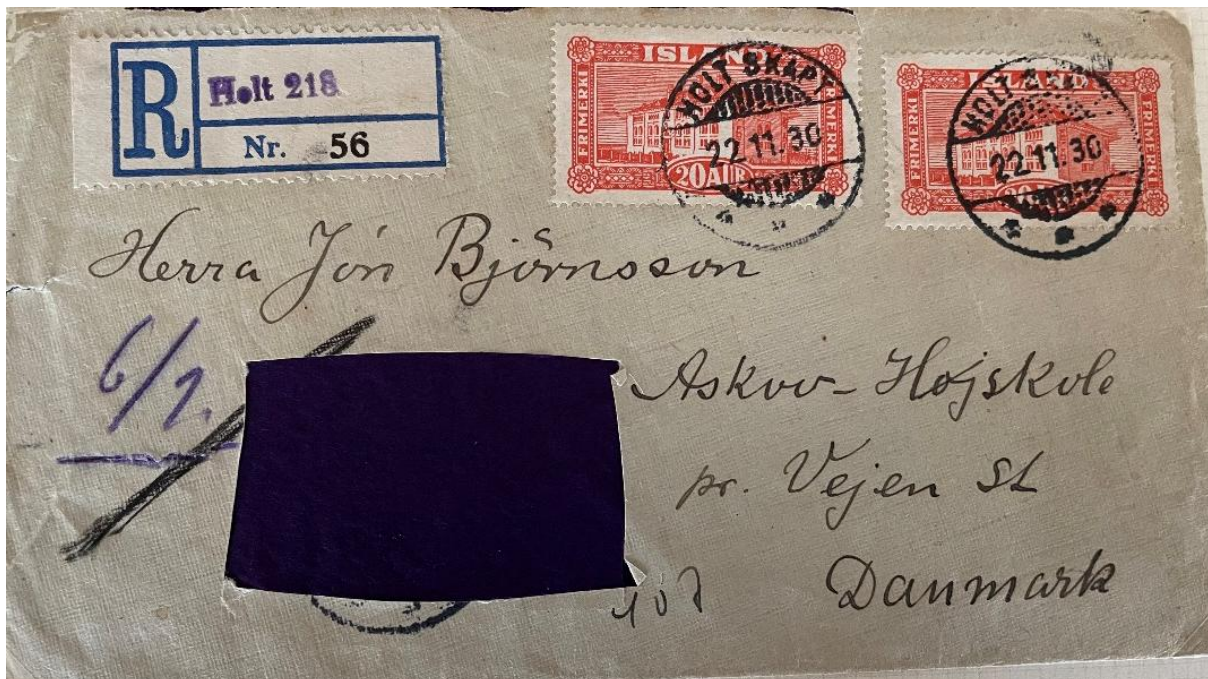 R
Holt 218
Nr. 56
ÍSLAND
FRIMERKI
FRIMERKI
20 AUR
HOLT SKAPT
22.11.30
FRIMERKI
FRIMERKI
HOLT
22.11.30
Herra Jón Björnsson
6/7.
Askov Højskole
pr. Vejen St
Danmark